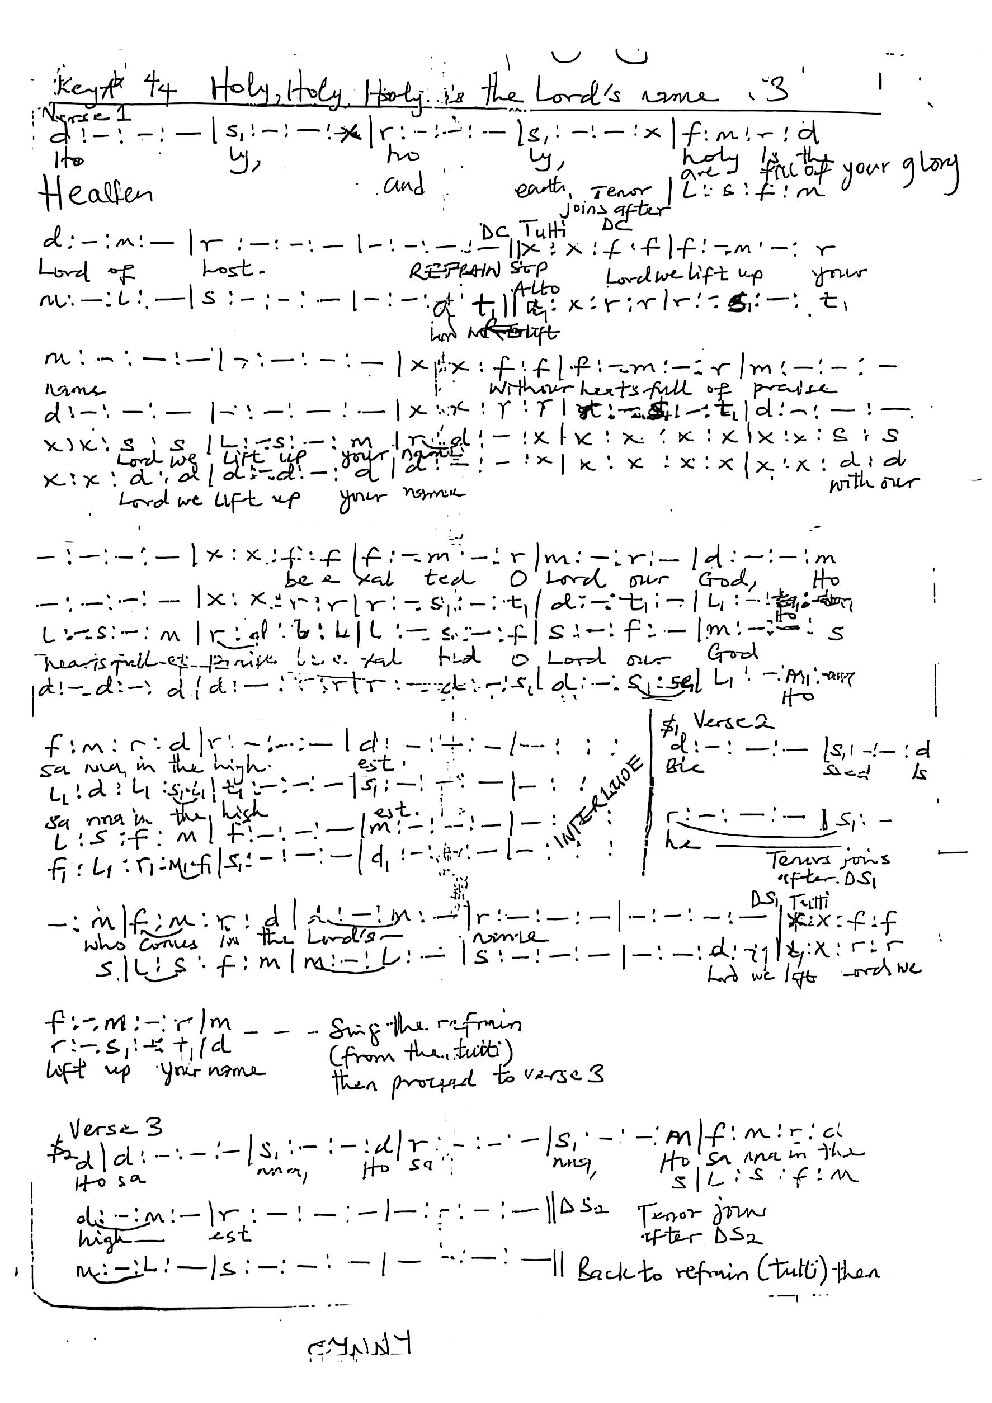 Key A# 4/4 Holy, Holy, Holy is the Lord's name . 3
Verse 1
d : - : - : — | s₁ : - : - : x | r : - : - : — | s₁ : - : - : x | f : m : r : d
Ho ly, ho ly, holy is the
Heaven and earth, are full of your glory
Tenor joins after DC | L : s : f : m
d : - : m : — | r : - : - : — | - : - : - : — || x : x : f : f | f : - . m : - : r
DC Tutti
Lord of host. REFRAIN Sop Lord we lift up your
Alto
m : — : L : — | s : - : - : — | - : - : d t₁ || d : x : r : r | r : - . s₁ : - : t₁
Lord we lift
m : - : — : — | - : - : - : — | x : x : f : f | f : - . m : - : r | m : - : - : —
name with our hearts full of praise
d : - : - : — | - : - : - : — | x : x : r : r | r : - . s₁ : - : t₁ | d : - : - : —
x : x : s : s | L : - . s : - : m | r : d : - : x | x : x : x : x | x : x : s : s
Lord we lift up your name
x : x : d : d | d : - . d : - : d | d : - : - : x | x : x : x : x | x : x : d : d
Lord we lift up your name with our
- : - : - : — | x : x : f : f | f : - . m : - : r | m : - : r : — | d : - : - : m
be e xal ted O Lord our God, Ho
- : - : - : — | x : x : r : r | r : - . s₁ : - : t₁ | d : - : t₁ : — | L₁ : -
Ho
L : - . s : - : m | r : d : L : L | L : - . s : - : f | s : - : f : — | m : - : - : s
hearts full of praise be e xal ted O Lord our God
d : - . d : - : d | d : - : r : r | r : - . d : - : s₁ | d : - : s₁ : se₁ | L₁ : - : m₁
Ho
f : m : r : d | r : - : - : — | d : - : - : — | - : - : :
sa nna, in the high. est.
L₁ : d : L₁ : s₁ . L₁ | t₁ : - : - : — | s₁ : - : - : — | - : - : :
sa nna in the high est.
L : s : f : m | f : - : - : — | m : - : - : — | - : :
f₁ : L₁ : r₁ : m₁ . f₁ | s₁ : - : - : — | d₁ : - : - : — | - : :
INTERLUDE
$₁ Verse 2
d : - : - : — | s₁ : - : - : d
Ble ssed Is
r : - : - : — | s₁ : - : -
he
Tenors joins
after DS₁
DS₁ Tutti
- : m | f : m : r : d | d : - : m : — | r : - : - : — | - : - : - : — || x : x : f : f
who comes in the Lord's name
s | L : s : f : m | m : - : L : — | s : - : - : — | - : - : d : t₁ || t₁ : x : r : r
Lord we lift Lord we
f : - . m : - : r | m — — — Sing the refrain
r : - . s₁ : - : t₁ | d (from the tutti)
lift up your name then proceed to verse 3
Verse 3
$₂ d | d : - : - : — | s₁ : - : - : d | r : - : - : — | s₁ : - : - : m | f : m : r : d
Ho sa nna, Ho sa nna, Ho sa nna in the
s | L : s : f : m
d : - : m : — | r : - : - : - | — : - : - : — || DS₂ Tenor join
high est after DS₂
m : - : L : — | s : - : - : - | — - : - : — || Back to refrain (tutti) then